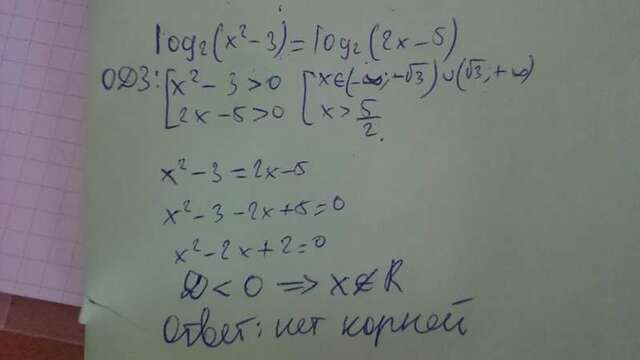 log₂(x²-3)=log₂(2x-5)
ОДЗ: [x²-3>0 [x∈(-∞;-√3)∪(√3;+∞)
[2x-5>0 [x>5/2.
x²-3=2x-5
x²-3-2x+5=0
x²-2x+2=0
D<0 => x∉R
Ответ: нет корней